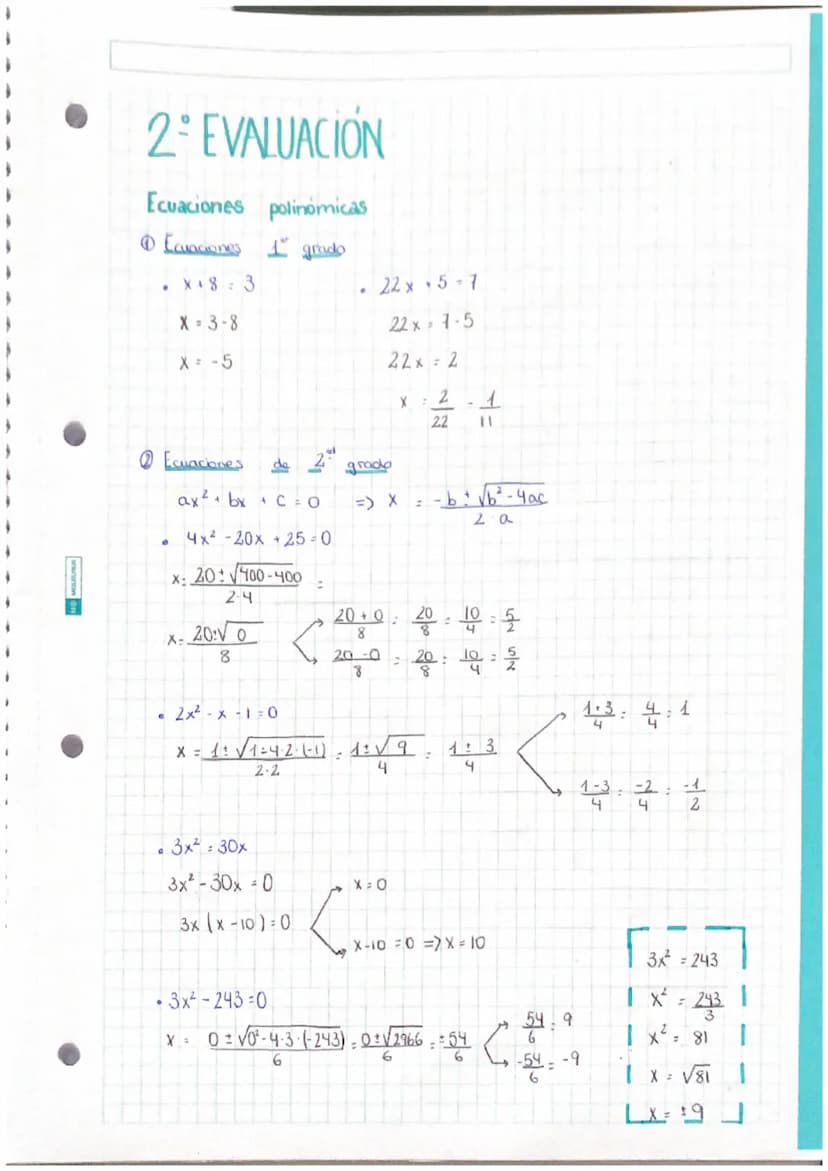 2º EVALUACIÓN
Ecuaciones polinómicas
① Ecuaciones 1er grado
• x + 8 = 3
x = 3 - 8
x = -5
• 22x + 5 = 7
22x = 7 - 5
22x = 2
x = 2/22 = 1/11
② Ecuaciones de 2do grado
ax² + bx + c = 0 => x = (-b ± √(b² - 4ac))/(2·a)
• 4x² - 20x + 25 = 0
x = (20 ± √(400 - 400))/(2·4) =
x = (20 ± √0)/8
(20 + 0)/8 = 20/8 = 10/4 = 5/2
(20 - 0)/8 = 20/8 = 10/4 = 5/2
• 2x² - x - 1 = 0
x = (1 ± √(1 - 4·2·(-1)))/(2·2) = (1 ± √9)/4 = (1 ± 3)/4
(1 + 3)/4 = 4/4 = 1
(1 - 3)/4 = -2/4 = -1/2
• 3x² = 30x
3x² - 30x = 0
3x (x - 10) = 0
x = 0
x - 10 = 0 => x = 10
• 3x² - 243 = 0
x = (0 ± √(0² - 4·3·(-243)))/6 = (0 ± √2966)/6 = ±54/6
54/6 = 9
-54/6 = -9
3x² = 243
x² = 243/3
x² = 81
x = √81
x = ±9
MIQUELRIUS